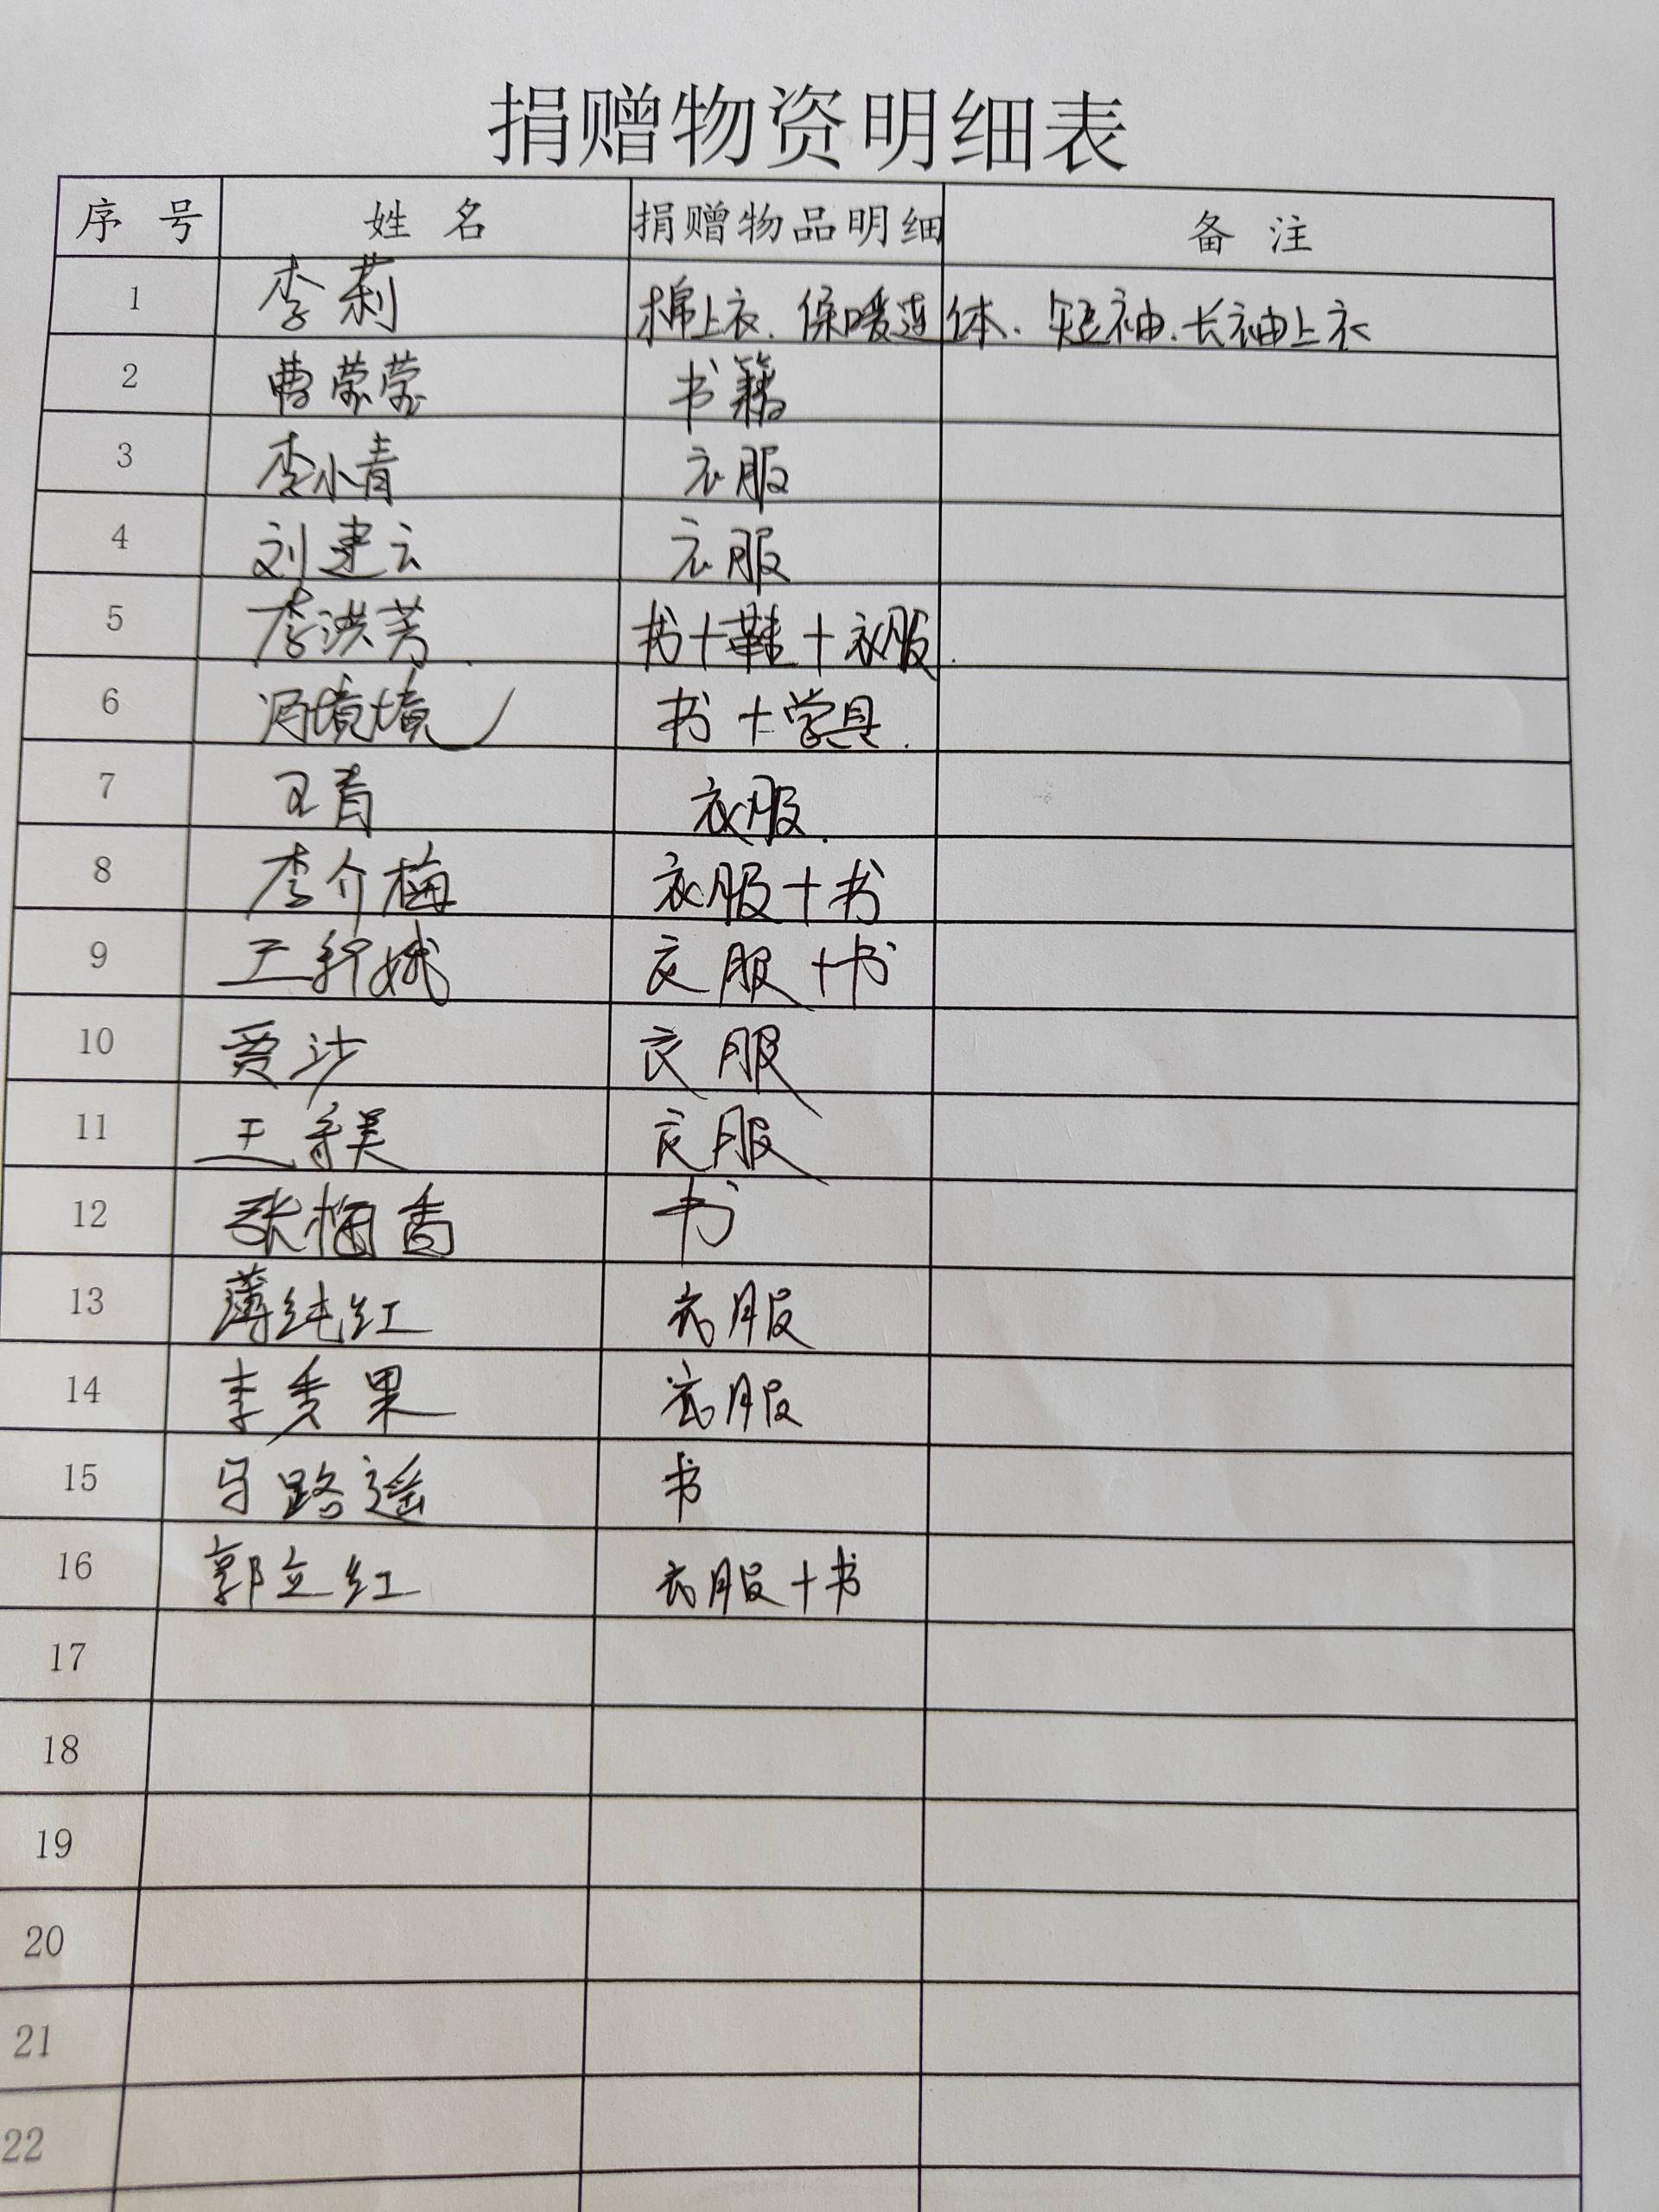 捐赠物资明细表
序号 姓名 捐赠物品明细 备注
1 李莉 棉上衣、保暖连体、短袖、长袖上衣
2 曹蒙蒙 书籍
3 李小青 衣服
4 刘建云 衣服
5 李洪芳 书+鞋+衣服
6 冯境境 书+学具
7 王青 衣服
8 李介梅 衣服+书
9 王新娥 衣服+书
10 贾沙 衣服
11 王 衣服
12 张梅香 书
13 薄纯红 衣服
14 李秀果 衣服
15 马路遥 书
16 郭立红 衣服+书
17
18
19
20
21
22